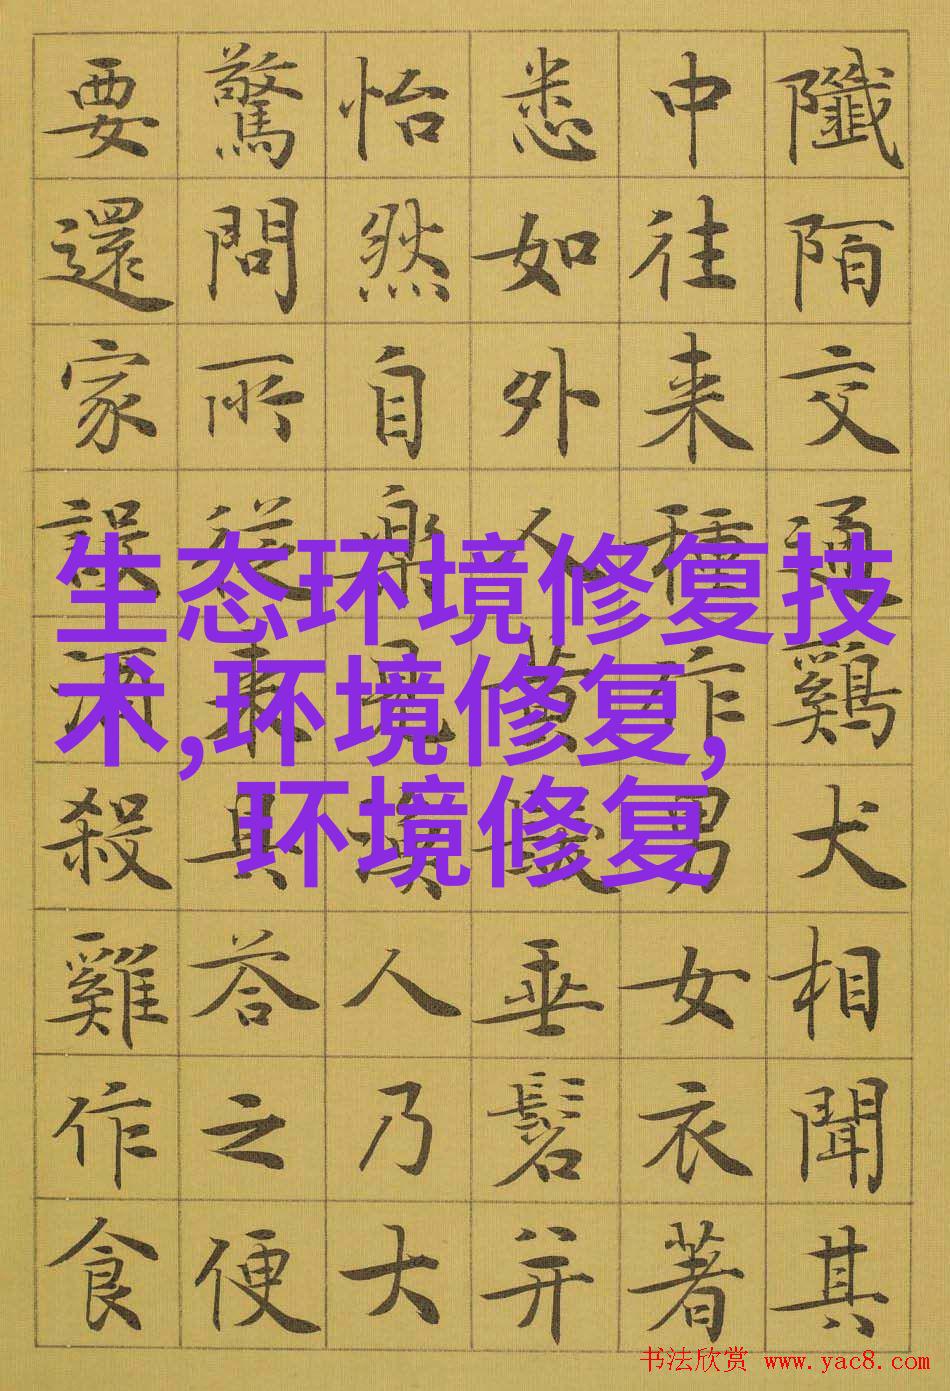 陌交通鷄犬相聞其
中往来種作男女衣著
悉如外人黄髮垂髫并
怡然自樂見漁人乃大
驚問所從来具答之便
要還家設酒殺雞作食
生态环境修复技
术,环境修复,
环境修复
书法欣赏 www.yac8.com